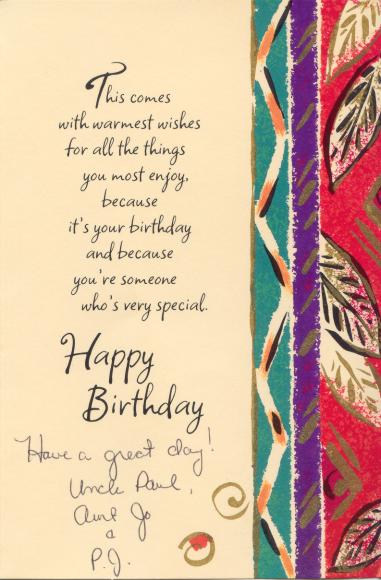 This comes
with warmest wishes
for all the things
you most enjoy,
because
it's your birthday
and because
you're someone
who's very special.
Happy
Birthday
Have a great day!
Uncle Paul,
Aunt Jo
&
P.J.